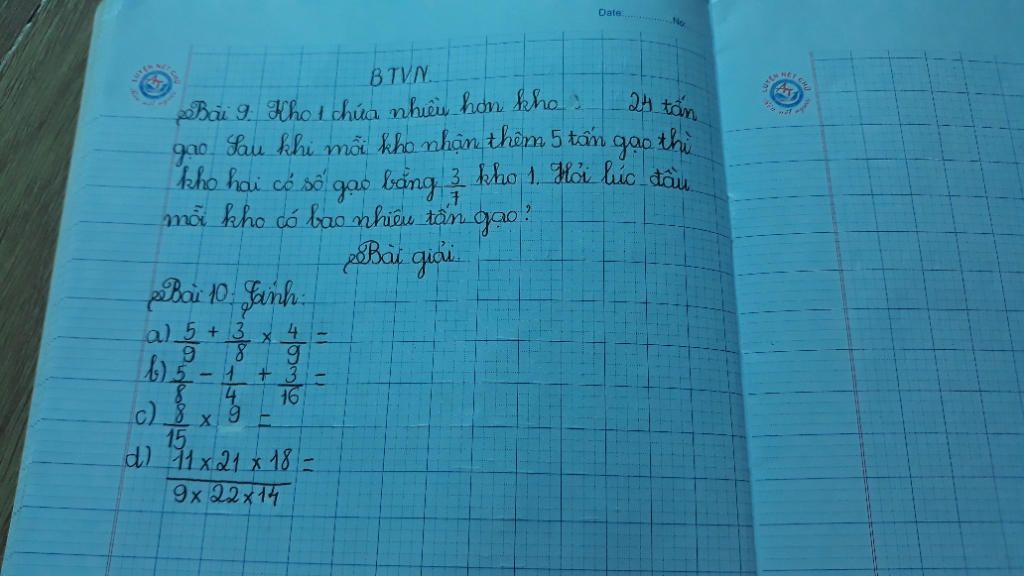 Date: No:
LUYỆN NÉT CHỮ
B T V N.
Bài 9. Kho 1 chứa nhiều hơn kho 2 24 tấn
gạo. Sau khi mỗi kho nhận thêm 5 tấn gạo thì
kho hai có số gạo bằng 3/7 kho 1. Hỏi lúc đầu
mỗi kho có bao nhiêu tấn gạo?
Bài giải
Bài 10: Tính:
a) 5/9 + 3/8 × 4/9 =
b) 5/8 - 1/4 + 3/16 =
c) 8/15 × 9 =
d) 11 × 21 × 18 / 9 × 22 × 14 =
LUYỆN NÉT CHỮ